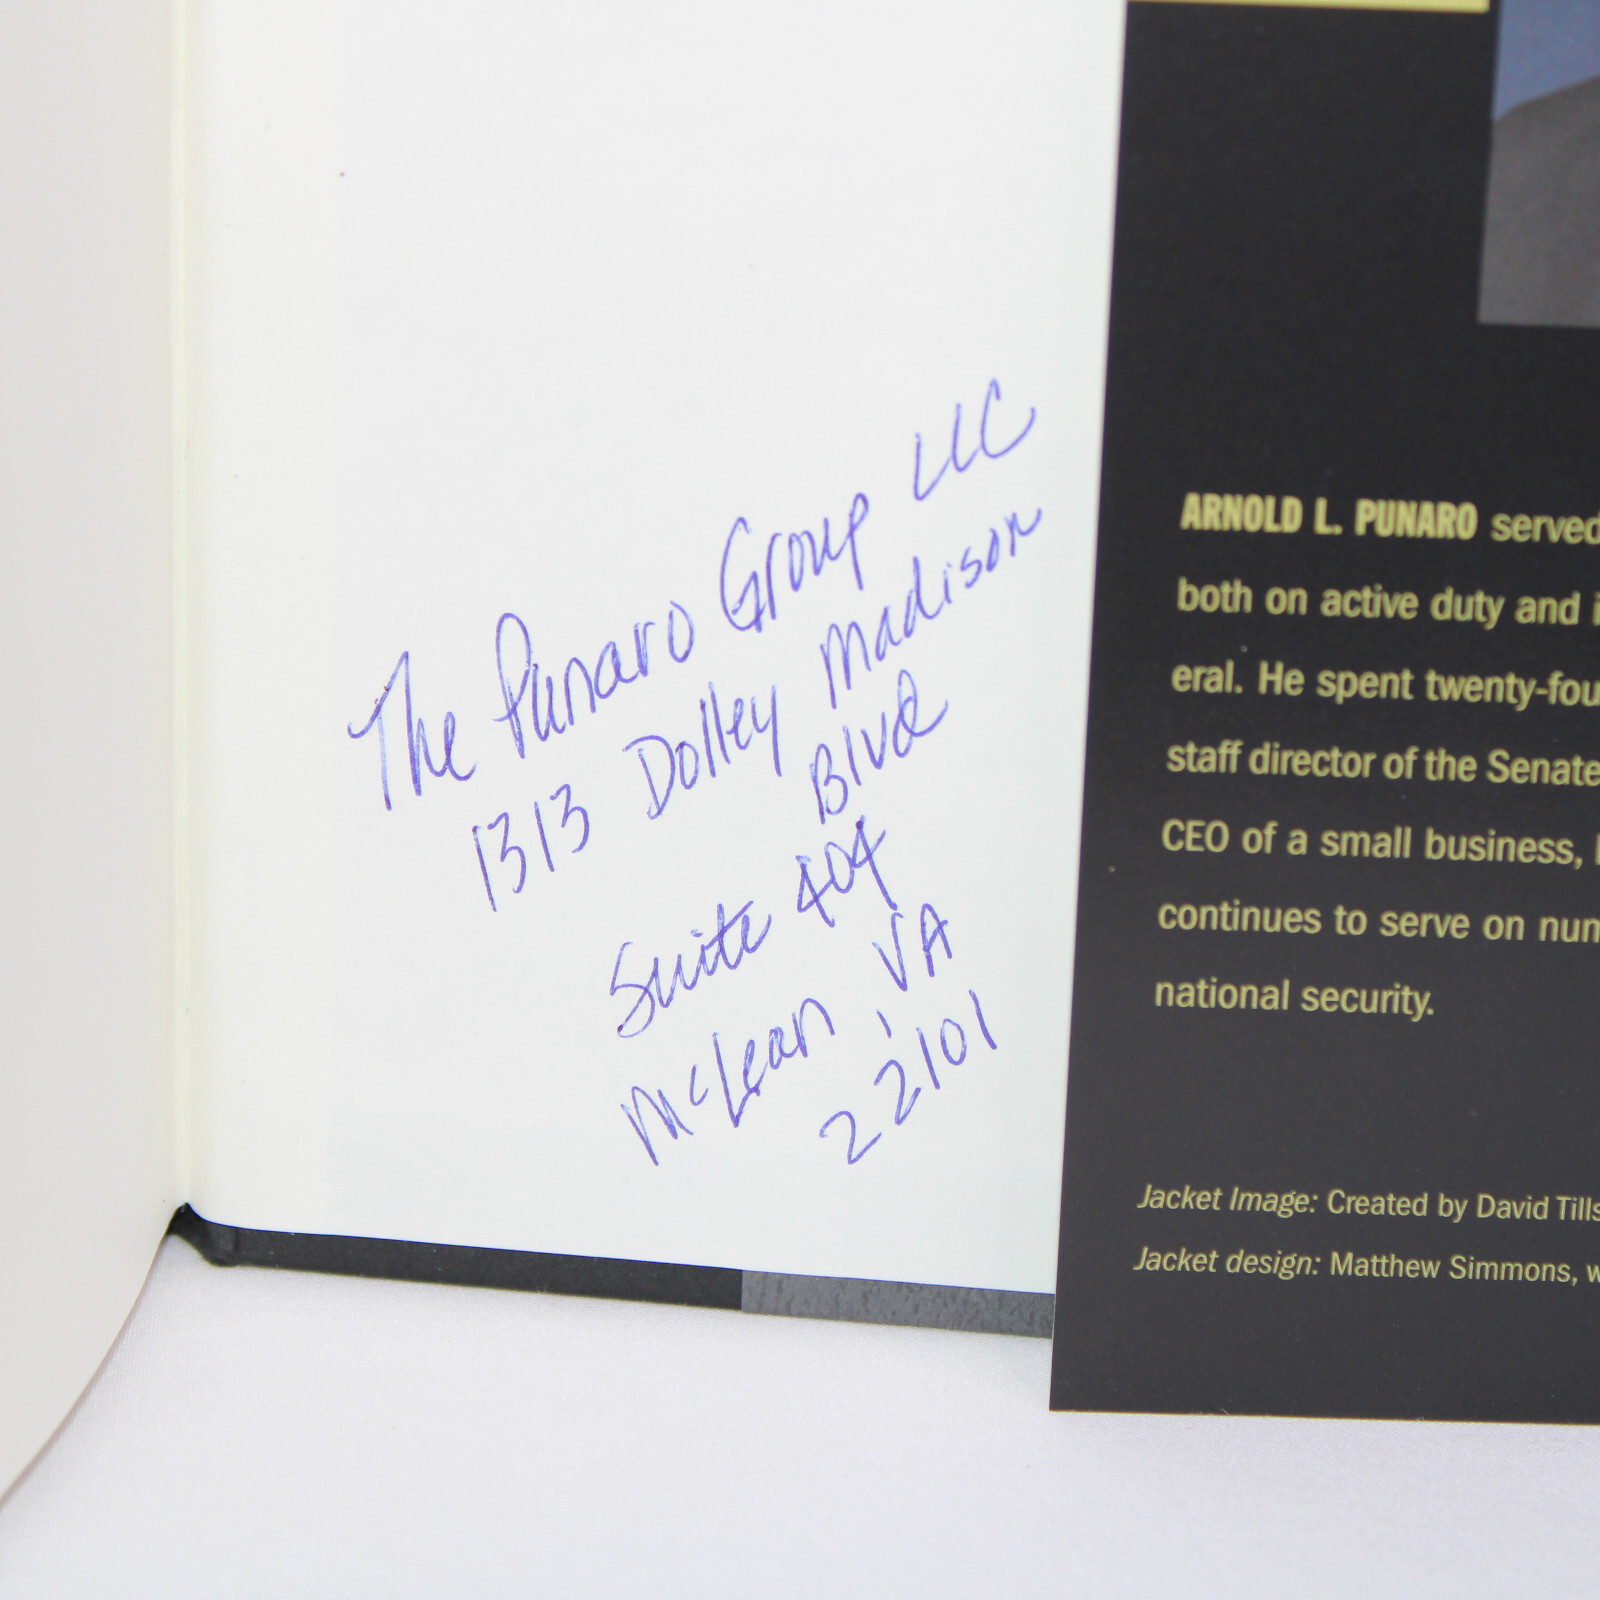 The Punaro Group LLC
1313 Dolley Madison
Blvd
Suite 404
McLean, VA
22101
ARNOLD L. PUNARO served
both on active duty and
eral. He spent twenty-fou
staff director of the Senate
CEO of a small business,
continues to serve on num
national security.
Jacket Image: Created by David Tills
Jacket design: Matthew Simmons, w